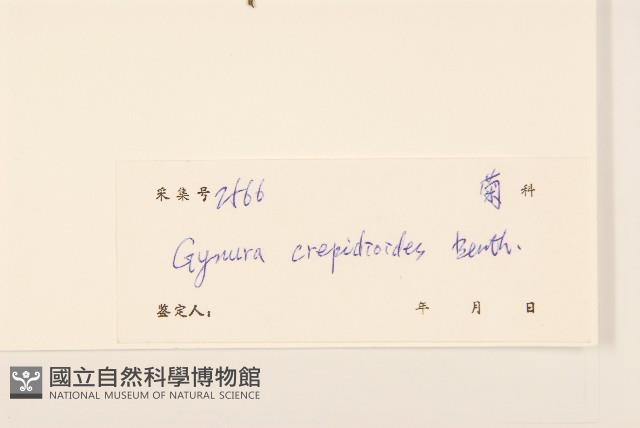 采集号 2566 菊 科
Gynura crepidioides Benth.
鉴定人： 年 月 日
國立自然科學博物館
NATIONAL MUSEUM OF NATURAL SCIENCE